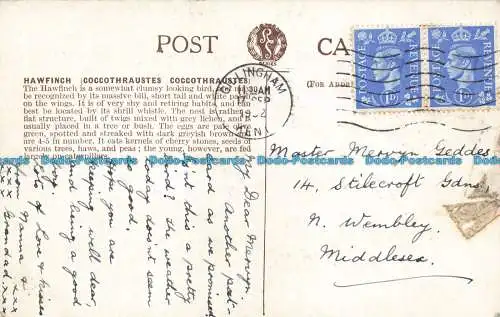 POST CA
SERIES
HAWFINCH (COCCOTHRAUSTES COCCOTHRAUSTES)
The Hawfinch is a somewhat clumsy looking bird, and may
be recognized by its massive bill, short tail and white patch
on the wings. It is very shy and retiring habits, and can
best be located by its shrill whistle. The nest is rather a
flat structure, built of twigs mixed with grey lichen, and is
usually placed in a tree or bush. The eggs are pale olive
green, spotted and streaked with dark greyish brown and
are 4-5 in number. It eats kernels of cherry stones, seeds of
various trees, haws, and peas; the young, however, are fed
largely on caterpillars.
(For
GILLINGHAM
30AM
SEP
KENT
POSTAGE REVENUE
POSTAGE REVENUE
Master Mervyn Geddes
14, Stilecroft Gdns,
N. Wembley,
Middlesex.
My Dear Mervyn,
Another post-
card as we promised,
isn't this a pretty
bird? the weather
today doesn't seem
so good.
Hope you are
keeping well dear,
and being a good
Lots of Love & kisses
from Nanna &
Grandad. xxx
xxx
Dodo-Postcards Dodo-Postcards Dodo-Postcards Dodo-Postcards